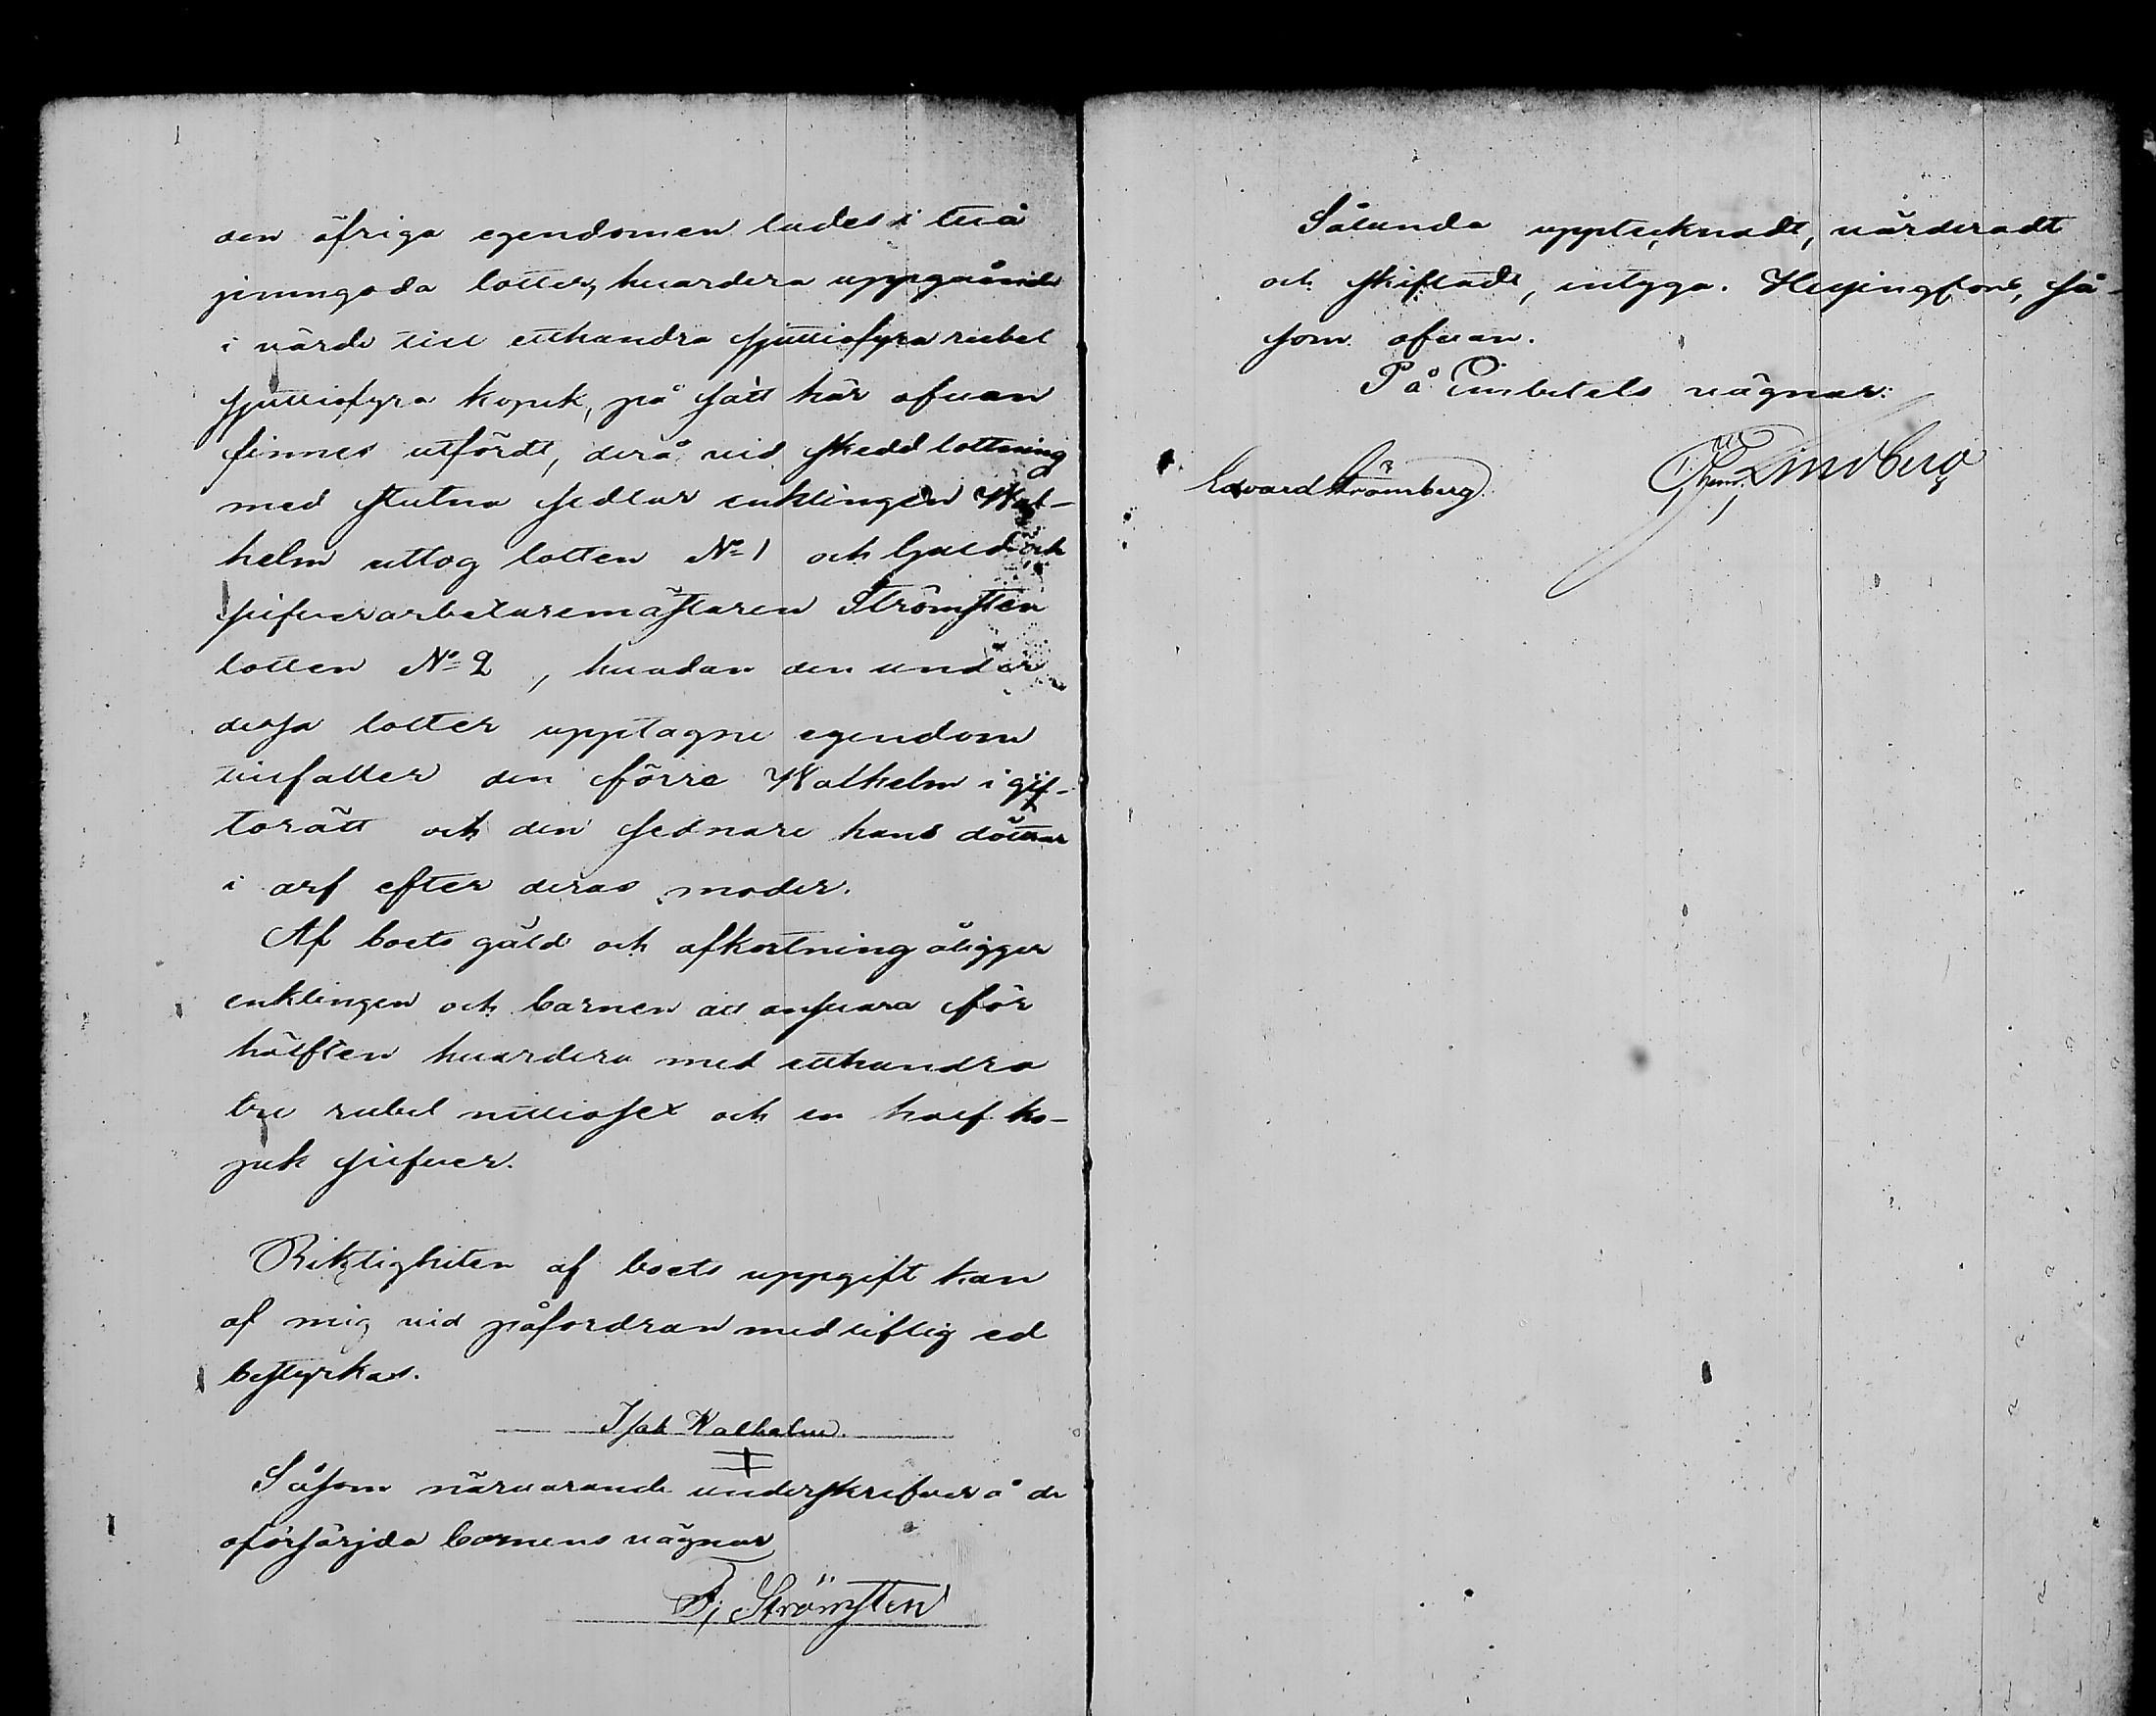 den öfriga egendomen lades i tuå
jemngoda lotter, huardera uppgående
i värde till etthundra sjuttiofyra rubel
sjuttiofyra kopek, på sätt här ofuan
finnes utfördt, derå vid skedd lottning
med slutna sedlar enklingen Wal-
helm uttog lotten No 1 och Guld och
silfuerarbetaremästaren Strömsten
lotten No 2, huadan den under
dessa lotter upptagne egendom
tillfaller den förre Walhelm i gif-
torätt och den sednare hans döttrar
i arf efter deras moder.
Af boets gäld och afkortning åligger
enklingen och barnen att ansuara för
hälften huardera med etthundra
tre rubel nittiosex och en half ko-
pek silfuer.
Riktigheten af boets uppgift kan
af mig vid påfordran med liflig ed
bestyrkas.
Isak Walhelm.
Såsom närvarande underskrifver å de
oförsörjda barnens vägnar
F. Strömsten
Sålunda upptecknadt, värderadt
och skiftadt, intyga. Helsingfors, så-
som ofuan.
På Embetets vägnar:
Edvard Strömberg. Lindberg